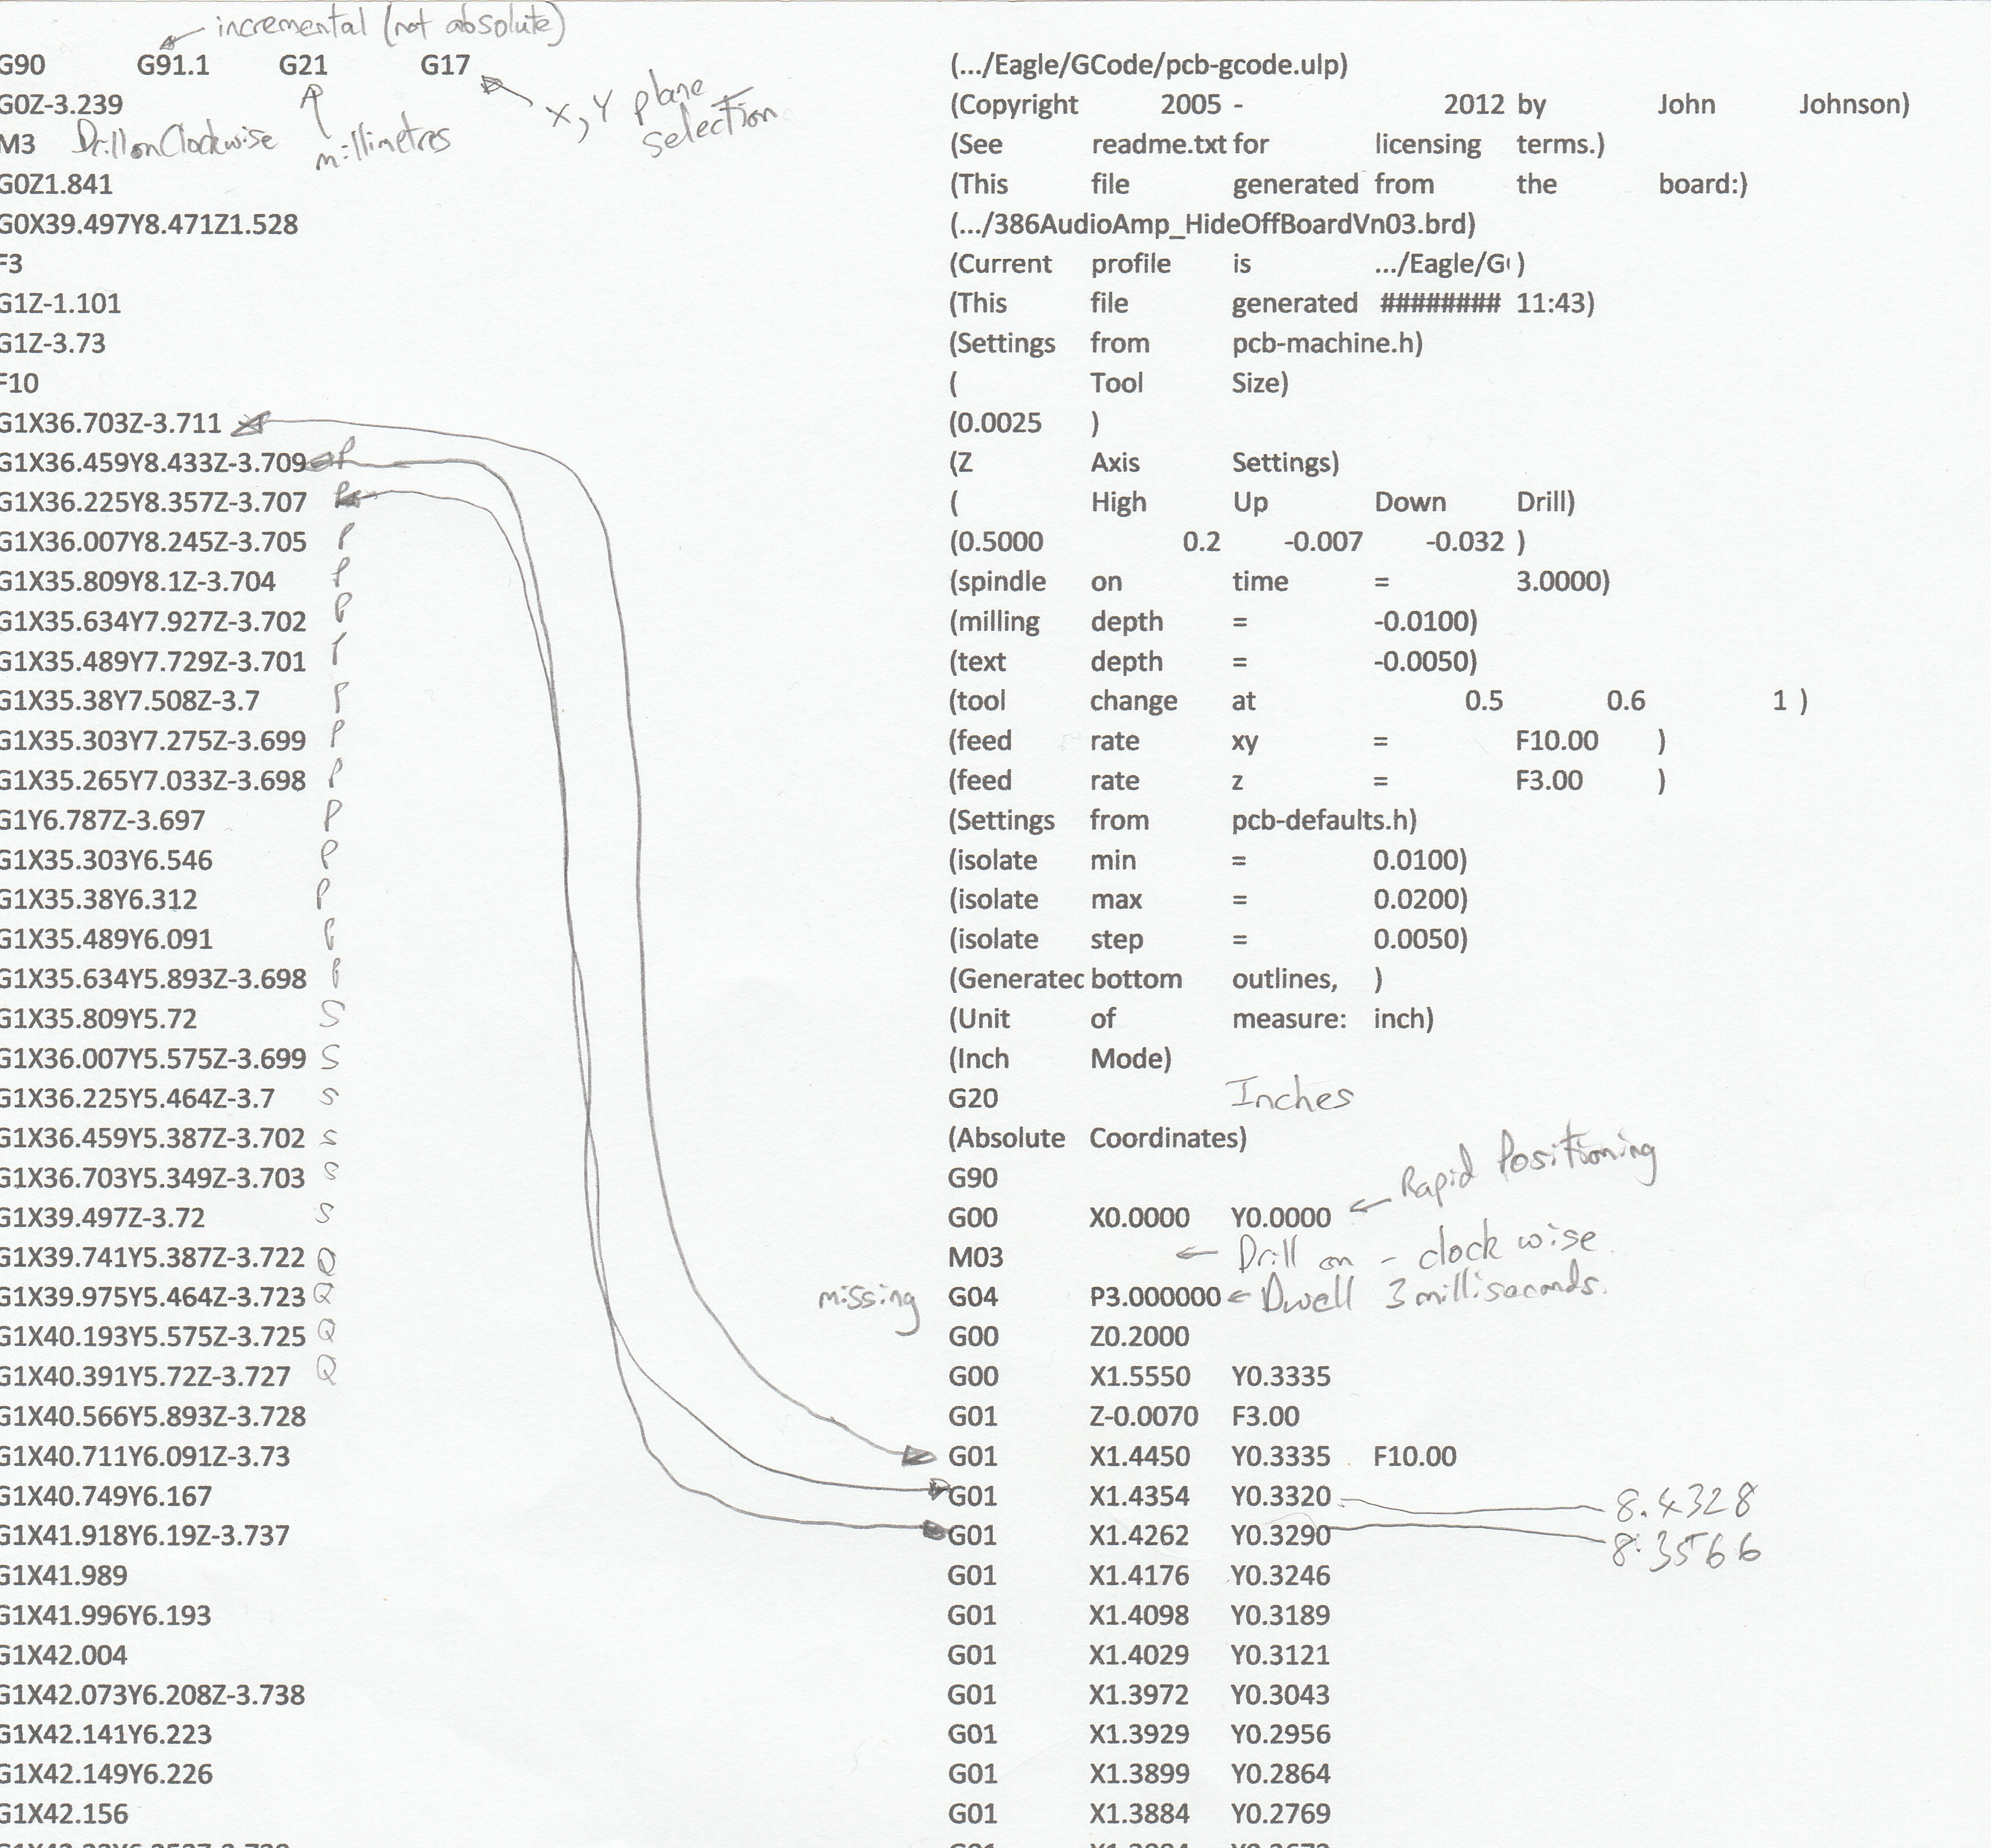 incremental (not absolute)
G90 G91.1 G21 G17
G0Z-3.239
X, Y plane selection
M3 Drill on Clockwise
millimetres
G0Z1.841
G0X39.497Y8.471Z1.528
F3
G1Z-1.101
G1Z-3.73
F10
G1X36.703Z-3.711
G1X36.459Y8.433Z-3.709 P
G1X36.225Y8.357Z-3.707 P
G1X36.007Y8.245Z-3.705 P
G1X35.809Y8.1Z-3.704 P
G1X35.634Y7.927Z-3.702 P
G1X35.489Y7.729Z-3.701 P
G1X35.38Y7.508Z-3.7 P
G1X35.303Y7.275Z-3.699 P
G1X35.265Y7.033Z-3.698 P
G1Y6.787Z-3.697 P
G1X35.303Y6.546 P
G1X35.38Y6.312 P
G1X35.489Y6.091 P
G1X35.634Y5.893Z-3.698 P
G1X35.809Y5.72 S
G1X36.007Y5.575Z-3.699 S
G1X36.225Y5.464Z-3.7 S
G1X36.459Y5.387Z-3.702 S
G1X36.703Y5.349Z-3.703 S
G1X39.497Z-3.72 S
G1X39.741Y5.387Z-3.722 Q
G1X39.975Y5.464Z-3.723 Q
G1X40.193Y5.575Z-3.725 Q
G1X40.391Y5.72Z-3.727 Q
G1X40.566Y5.893Z-3.728
G1X40.711Y6.091Z-3.73
G1X40.749Y6.167
G1X41.918Y6.19Z-3.737
G1X41.989
G1X41.996Y6.193
G1X42.004
G1X42.073Y6.208Z-3.738
G1X42.141Y6.223
G1X42.149Y6.226
G1X42.156
(.../Eagle/GCode/pcb-gcode.ulp)
(Copyright 2005 - 2012 by John Johnson)
(See readme.txt for licensing terms.)
(This file generated from the board:)
(.../386AudioAmp_HideOffBoardVn03.brd)
(Current profile is .../Eagle/G )
(This file generated ######## 11:43)
(Settings from pcb-machine.h)
( Tool Size)
(0.0025 )
(Z Axis Settings)
( High Up Down Drill)
(0.5000 0.2 -0.007 -0.032 )
(spindle on time = 3.0000)
(milling depth = -0.0100)
(text depth = -0.0050)
(tool change at 0.5 0.6 1 )
(feed rate xy = F10.00 )
(feed rate z = F3.00 )
(Settings from pcb-defaults.h)
(isolate min = 0.0100)
(isolate max = 0.0200)
(isolate step = 0.0050)
(Generatec bottom outlines, )
(Unit of measure: inch)
(Inch Mode)
G20 Inches
(Absolute Coordinates)
G90
G00 X0.0000 Y0.0000 ← Rapid Positioning
M03 ← Drill on - clock wise
missing G04 P3.000000 ← Dwell 3 milliseconds.
G00 Z0.2000
G00 X1.5550 Y0.3335
G01 Z-0.0070 F3.00
G01 X1.4450 Y0.3335 F10.00
G01 X1.4354 Y0.3320 8.4328
G01 X1.4262 Y0.3290 8.3566
G01 X1.4176 Y0.3246
G01 X1.4098 Y0.3189
G01 X1.4029 Y0.3121
G01 X1.3972 Y0.3043
G01 X1.3929 Y0.2956
G01 X1.3899 Y0.2864
G01 X1.3884 Y0.2769